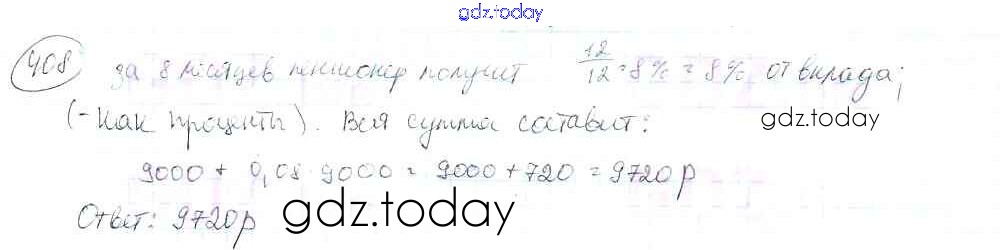 gdz.today
408 За 8 месяцев пенсионер получит 12/12 · 8% = 8% от вклада;
(- как проценты). Вся сумма составит:
gdz.today
9000 + 0,08 · 9000 = 9000 + 720 = 9720 р
Ответ: 9720 р
gdz.today